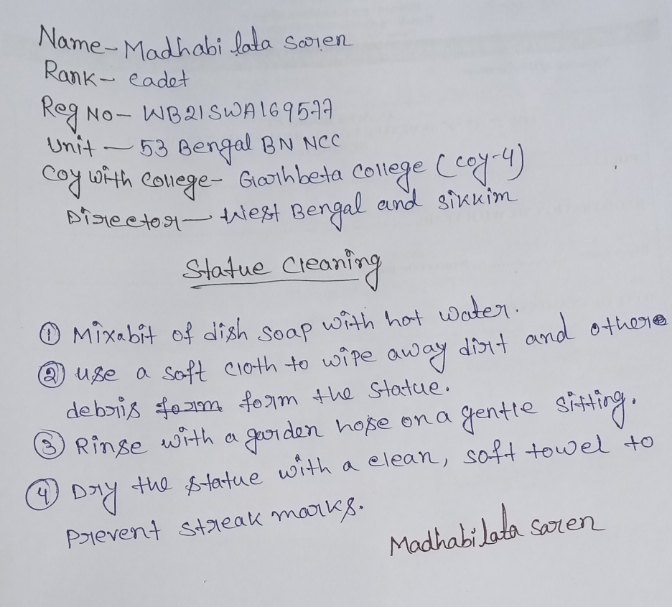 Name- Madhabi lata Soren
Rank- cadet
Reg No- WB21SWA169577
Unit - 53 Bengal BN NCC
Coy with College- Garhbeta College (coy-4)
Director- West Bengal and sikkim
Statue Cleaning
① Mixabit of dish soap with hot water.
② use a soft cloth to wipe away dirt and othere
debris form the Statue.
③ Rinse with a garden hose on a gentle sitting.
④ Dry the statue with a clean, soft towel to
Prevent streak marks.
Madhabi lata saren